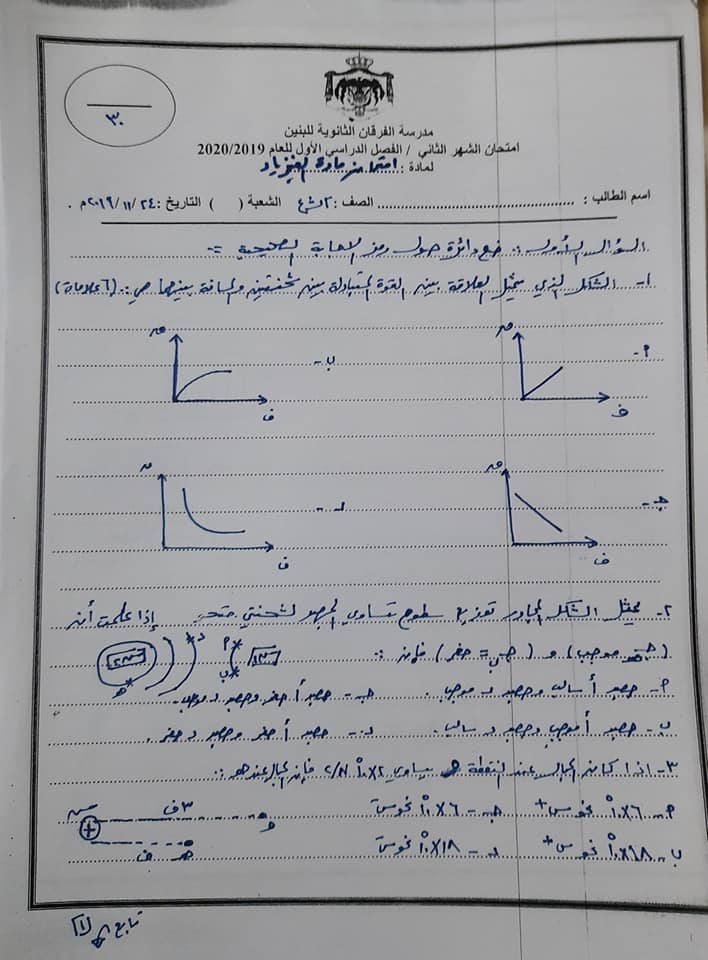 ٣٠
مدرسة الفرقان الثانوية للبنين
امتحان الشهر الثاني / الفصل الدراسي الأول للعام 2020/2019
لمادة : امتحان مادة الفيزياء
اسم الطالب : الصف : ٢ث ع الشعبة ( ) التاريخ : ٢٤ / ١١ / ٢٠١٩ م .
السؤال الأول : ضع دائرة حول رمز الاجابة الصحيحة :-
١- الشكل الذي يمثل العلاقة بين القوة المتبادلة بين شحنتين والمسافة بينهما هي : (٦ علامات)
أ- ف
ب- ف
جـ- ف
د- ف
٢- يمثل الشكل المجاور توزيع سطوح تساوي الجهد لشحنتي إذا علمت أن
( موجب) و ( = صفر) فإن :
أ- جهد أ سالب وجهد د موجب . جـ- جهد أ صفر وجهد د موجب .
ب- جهد أ موجب وجهد د سالب . د- جهد أ صفر وجهد د صفر .
٣- اذا كان المجال عند النقطة هـ يساوي فإن المجال عند هو :
أ- س+ جـ- س- ٣ف
ب- س+ د- س- هـ ف
تابع